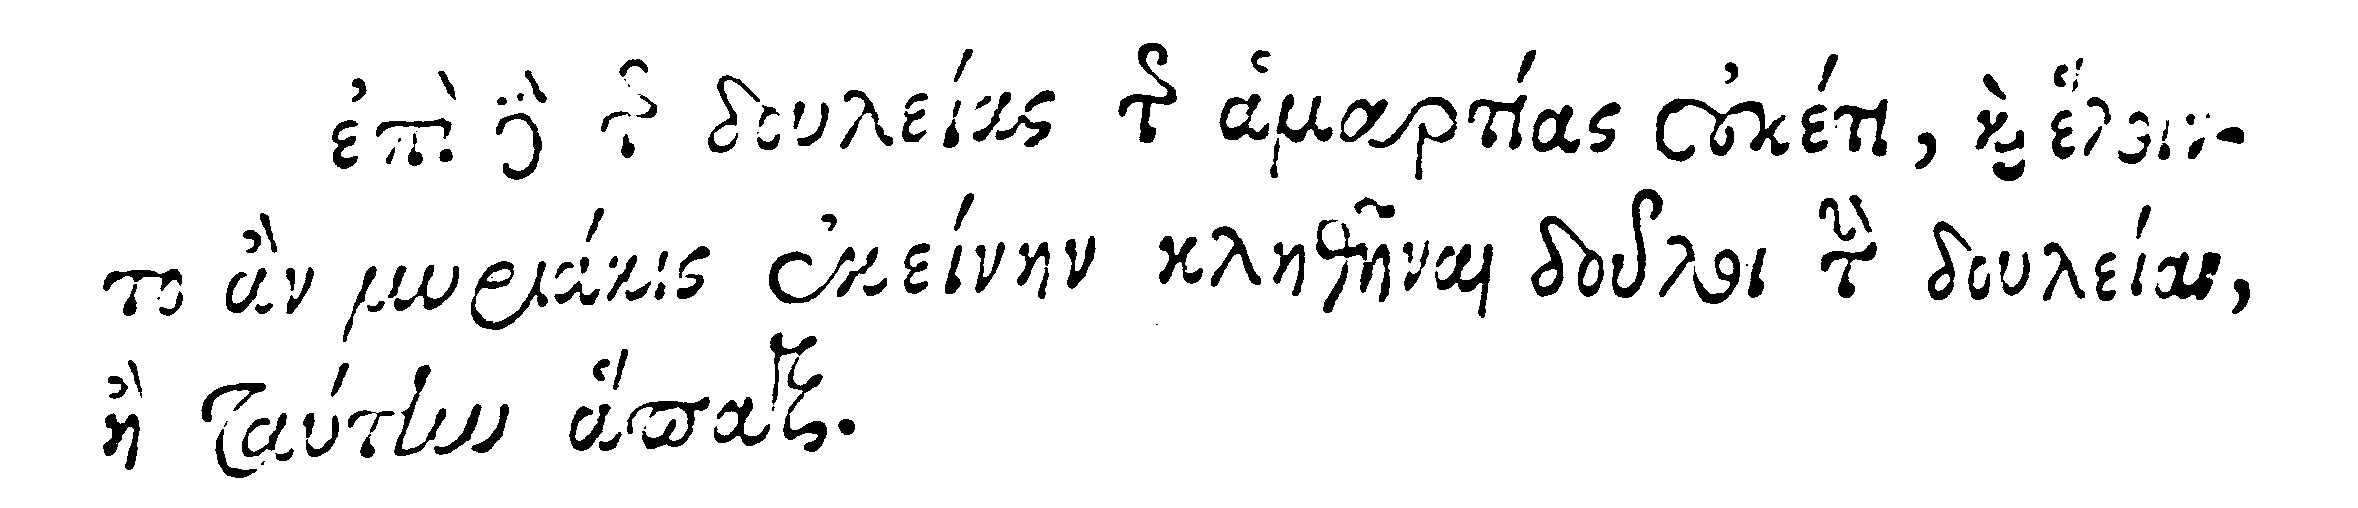 ἐπὶ δὲ τῆς δουλείας τῆς ἁμαρτίας οὐκέτι, καὶ ἕλοιν-
το ἂν μυριάκις ἐκείνην κληθῆναι δοῦλοι τὴν δουλείαν,
ἢ ταύτην ἅπαξ.